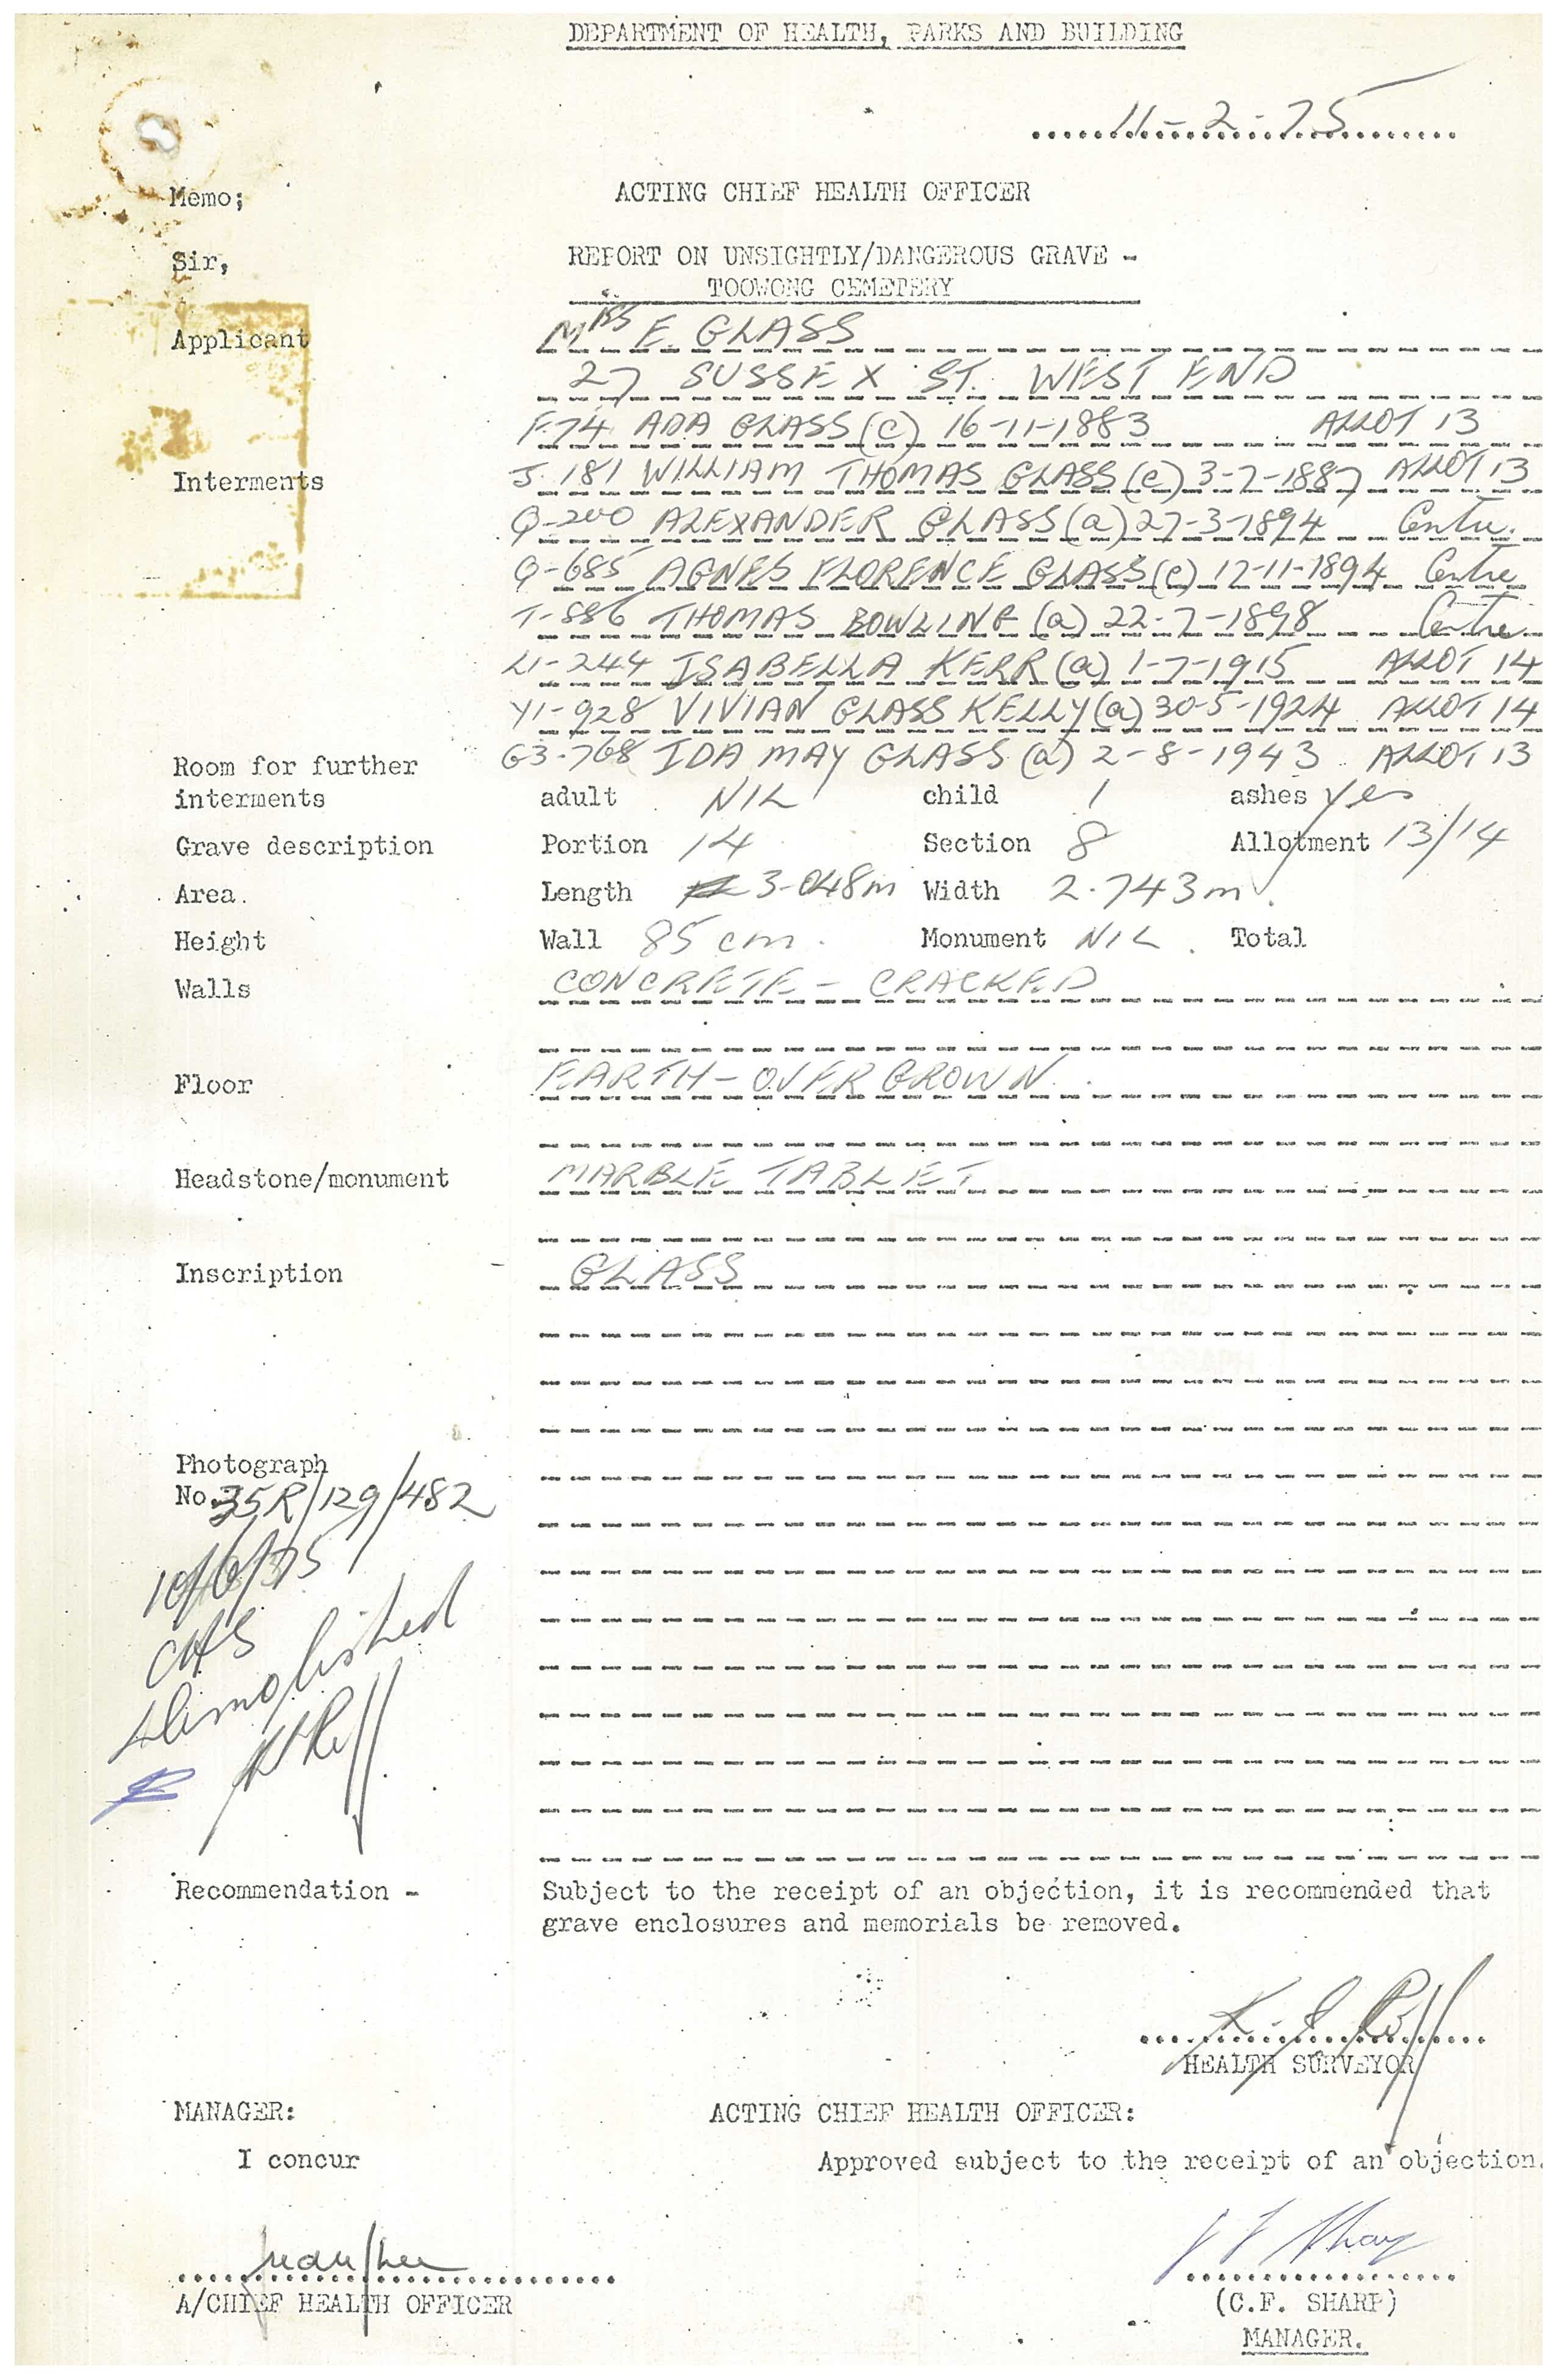 DEPARTMENT OF HEALTH, PARKS AND BUILDING
11-2-75
Memo; ACTING CHIEF HEALTH OFFICER
Sir, REPORT ON UNSIGHTLY/DANGEROUS GRAVE -
TOOWONG CEMETERY
Applicant MRS E. GLASS
27 SUSSEX ST. WEST END
F.74 ADA GLASS (c) 16-11-1883 ALLOT 13
Interments J.181 WILLIAM THOMAS GLASS (c) 3-7-1887 ALLOT 13
Q-200 ALEXANDER GLASS (a) 27-3-1894 Centre.
Q-685 AGNES FLORENCE GLASS (c) 17-11-1894 Centre
T-886 THOMAS BOWLING (a) 22-7-1898 Centre
L1-244 ISABELLA KERR (a) 1-7-1915 ALLOT 14
Y1-928 VIVIAN GLASS KELLY (a) 30-5-1924 ALLOT 14
G3-768 IDA MAY GLASS (a) 2-8-1943 ALLOT 13
Room for further
interments adult NIL child 1 ashes yes
Grave description Portion 14 Section 8 Allotment 13/14
Area. Length 3-048m Width 2.743m.
Height Wall 85 cm. Monument NIL. Total
Walls CONCRETE - CRACKED
Floor EARTH - OVERGROWN.
Headstone/monument MARBLE TABLET
Inscription - GLASS
Photograph
No. 35R/129/482
10/6/75
demolished
Recommendation - Subject to the receipt of an objection, it is recommended that
grave enclosures and memorials be removed.
HEALTH SURVEYOR
MANAGER: ACTING CHIEF HEALTH OFFICER:
I concur Approved subject to the receipt of an objection.
A/CHIEF HEALTH OFFICER (C.F. SHARP)
MANAGER.